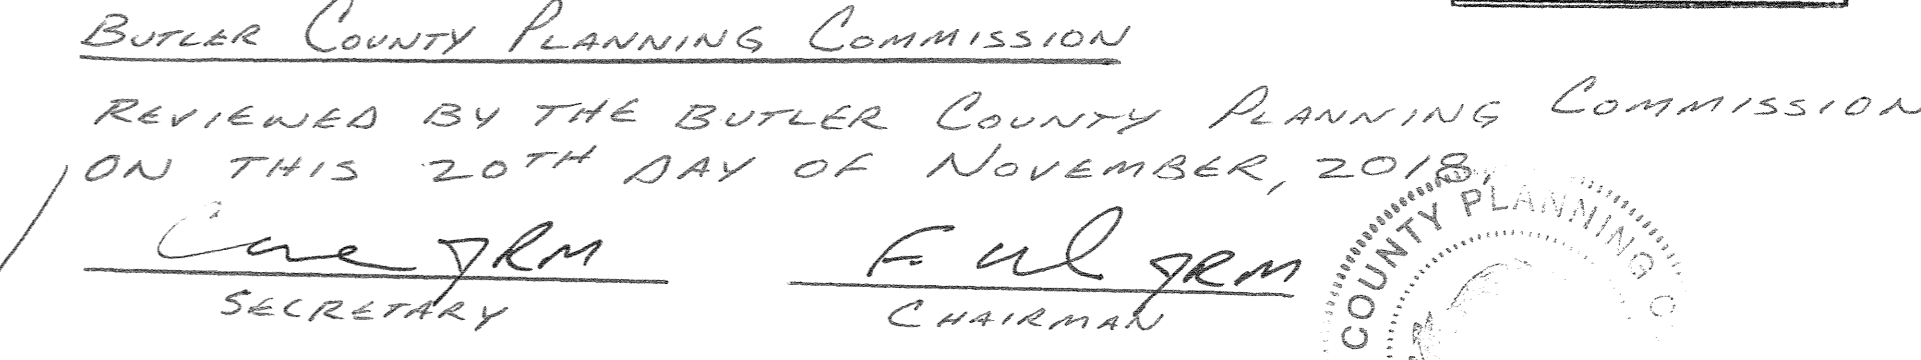 BUTLER COUNTY PLANNING COMMISSION
REVIEWED BY THE BUTLER COUNTY PLANNING COMMISSION
ON THIS 20TH DAY OF NOVEMBER, 2018.
JRM
F. JRM
SECRETARY
CHAIRMAN
COUNTY PLANNING C